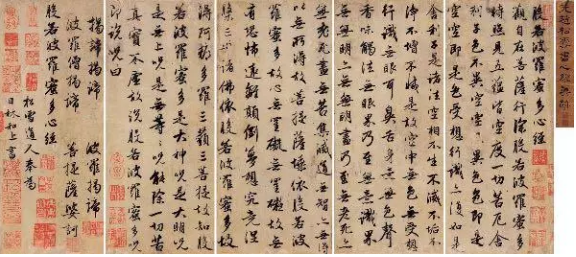 般若波羅蜜多心經
觀自在菩薩行深般若波羅蜜多
時照見五蘊皆空度一切苦厄舍
利子色不異空空不異色色即是
空空即是色受想行識亦復如是
舍利子是諸法空相不生不滅不垢不
淨不增不減是故空中無色無受想
行識無眼耳鼻舌身意無色聲
香味觸法無眼界乃至無意識界
無無明亦無無明盡乃至無老死亦
無老死盡無苦集滅道無智亦無得
以無所得故菩提薩埵依般若
波羅蜜多故心無罣礙無罣礙故無
有恐怖遠離顛倒夢想究竟涅
槃三世諸佛依般若波羅蜜多故
得阿耨多羅三藐三菩提故知般
若波羅蜜多是大神咒是大明咒
是無上咒是無等等咒能除一切苦
真實不虛故說般若波羅蜜多咒
即說咒曰
揭諦揭諦 波羅揭諦
波羅僧揭諦 菩提薩婆訶
般若波羅蜜多心經
松雪道人奉為
日林和上書